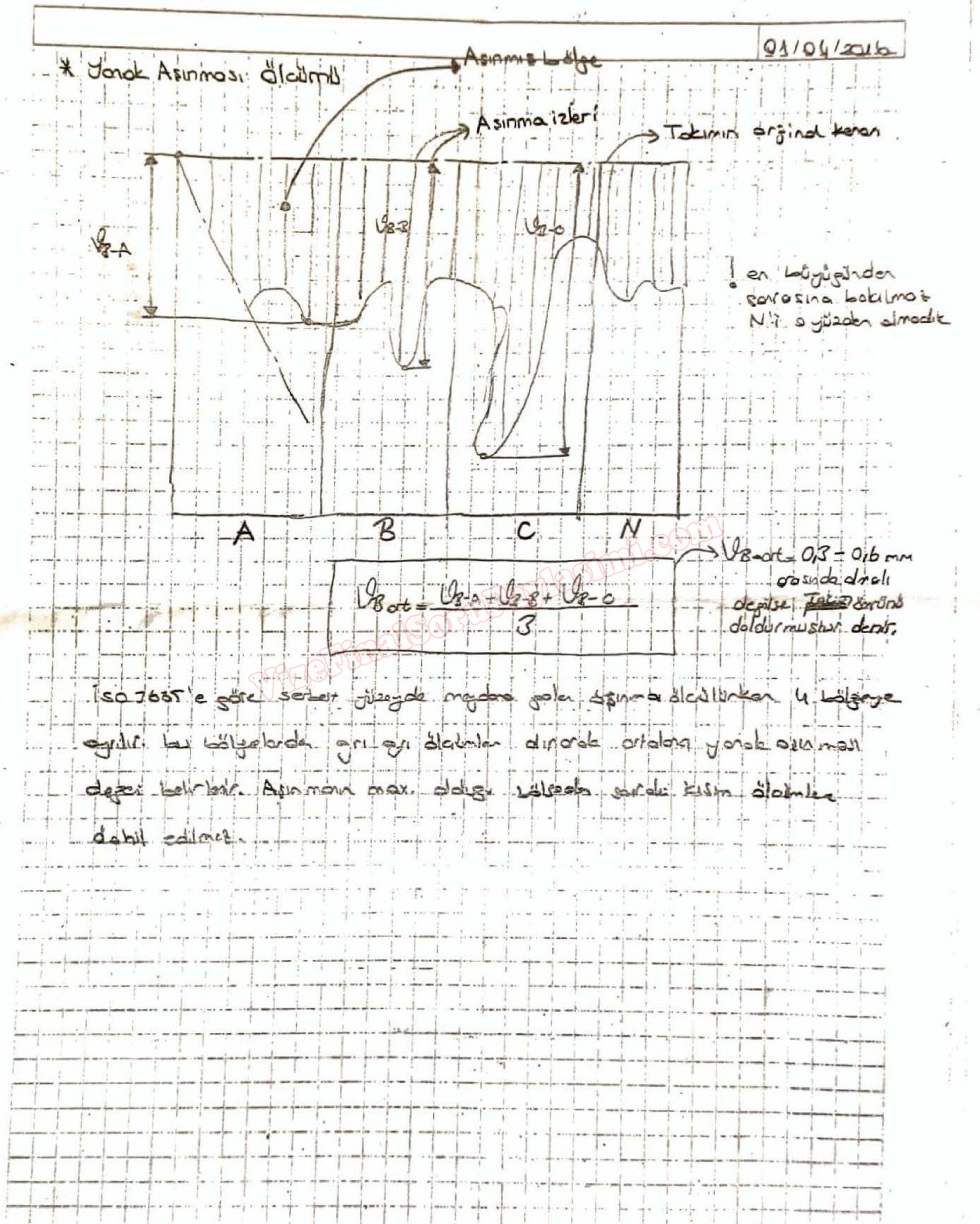 01/04/2016
* Yanak Aşınması Ölçümü
Aşınmış bölge
Aşınma izleri
Takımın orjinal kenarı
VB-A
VB-B
VB-C
! en büyüğünden
sonrasına bakılmaz
N'i o yüzden almadık
A B C N
VBort = VB-A + VB-B + VB-C
3
VB-ort = 0,3 - 0,6 mm
arasında olmalı
değilse ömrünü
doldurmuştur denir.
VizeFinalSoruPaylasimi.com
ISO 'e göre serbest yüzeyde meydana gelen aşınma ölçülürken 4 bölgeye
ayrılır. bu bölgelerden ayrı ayrı ölçümler alınarak ortalama yanak aşınması
değeri belirlenir. Aşınmanın max. olduğu bölgeden sonraki kısım ölçümlere
dahil edilmez.